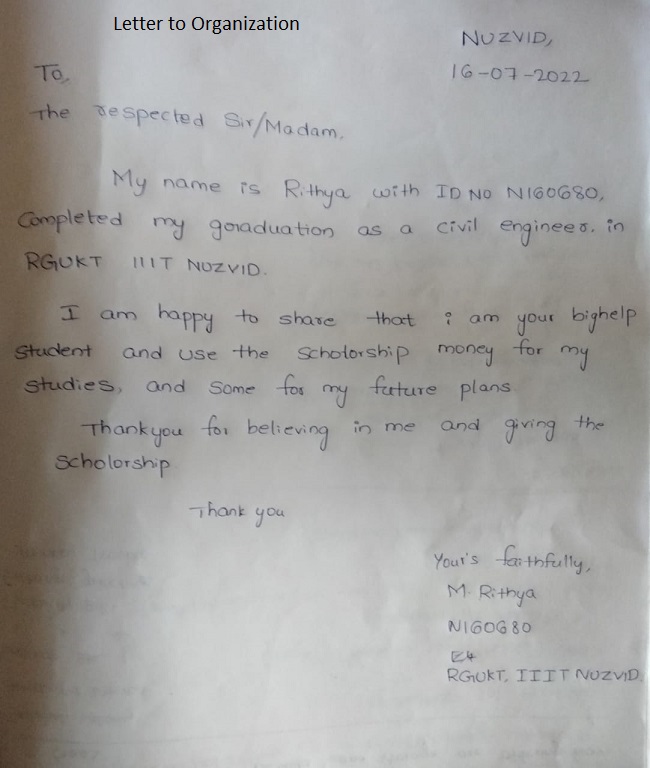 Letter to Organization
NUZVID,
16-07-2022
To,
The respected Sir/Madam,
My name is Rithya with ID NO N160680,
Completed my goraduation as a civil engineer. in
RGUKT IIIT NUZVID.
I am happy to share that i am your bighelp
student and use the scholorship money for my
studies, and some for my future plans
Thankyou for believing in me and giving the
scholorship
Thank you
Your's faithfully,
M. Rithya
N160680
E4
RGUKT, IIIT NUZVID.